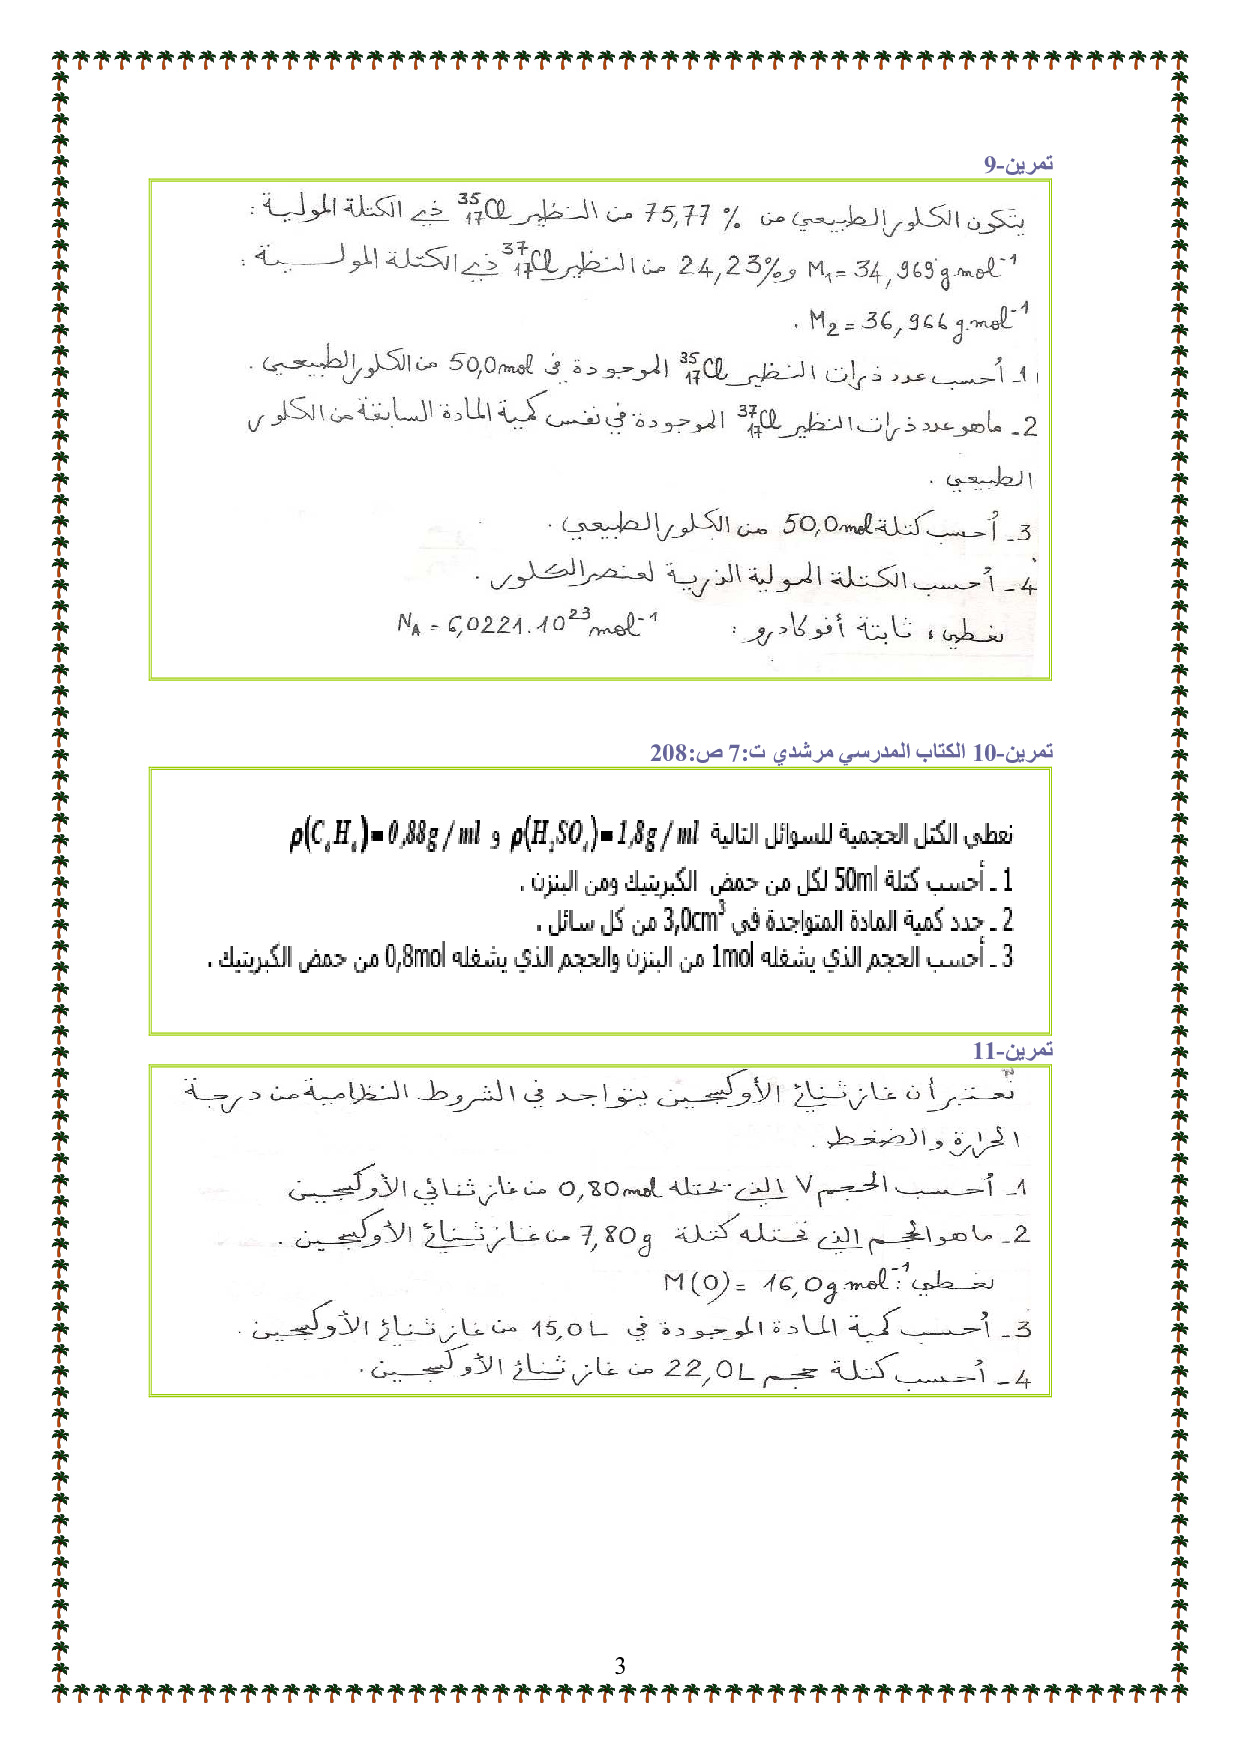 تمرين-9
يتكون الكلور الطبيعي من % 75,77 من النظير ³⁵₁₇Cl ذي الكتلة المولية :
M₁ = 34,969 g.mol⁻¹ و 24,23% من النظير ³⁷₁₇Cl ذي الكتلة المولية :
M₂ = 36,966 g.mol⁻¹ .
1- أحسب عدد ذرات النظير ³⁵₁₇Cl الموجودة في 50,0mol من الكلور الطبيعي .
2- ماهو عدد ذرات النظير ³⁷₁₇Cl الموجودة في نفس كمية المادة السابقة من الكلور
الطبيعي .
3- أحسب كتلة 50,0mol من الكلور الطبيعي .
4- أحسب الكتلة المولية الذرية لعنصر الكلور .
نعطي : ثابتة أفوكادرو : N_A = 6,0221.10²³ mol⁻¹
تمرين-10 الكتاب المدرسي مرشدي ت:7 ص:208
نعطي الكتل الحجمية للسوائل التالية ρ(H₂SO₄)=1,8g/ml و ρ(C₆H₆)=0,88g/ml
1 ـ أحسب كتلة 50ml لكل من حمض الكبريتيك ومن البنزن .
2 ـ حدد كمية المادة المتواجدة في 3,0cm³ من كل سائل .
3 ـ أحسب الحجم الذي يشغله 1mol من البنزن والحجم الذي يشغله 0,8mol من حمض الكبريتيك .
تمرين-11
نعتبر أن غاز ثنائي الأوكسيجين يتواجد في الشروط النظامية من درجة
الحرارة والضغط .
1- أحسب الحجم V الذي تحتله 0,80mol من غاز ثنائي الأوكسيجين
2- ماهو الحجم الذي تحتله كتلة 7,80g من غاز ثنائي الأوكسيجين .
نعطي : M(O) = 16,0g.mol⁻¹
3- أحسب كمية المادة الموجودة في 15,0L من غاز ثنائي الأوكسيجين .
4- أحسب كتلة حجم 22,0L من غاز ثنائي الأوكسيجين .
3